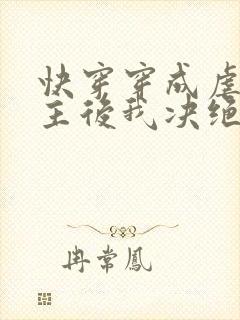 快穿穿成虐
主後我决绝
冉常鳳